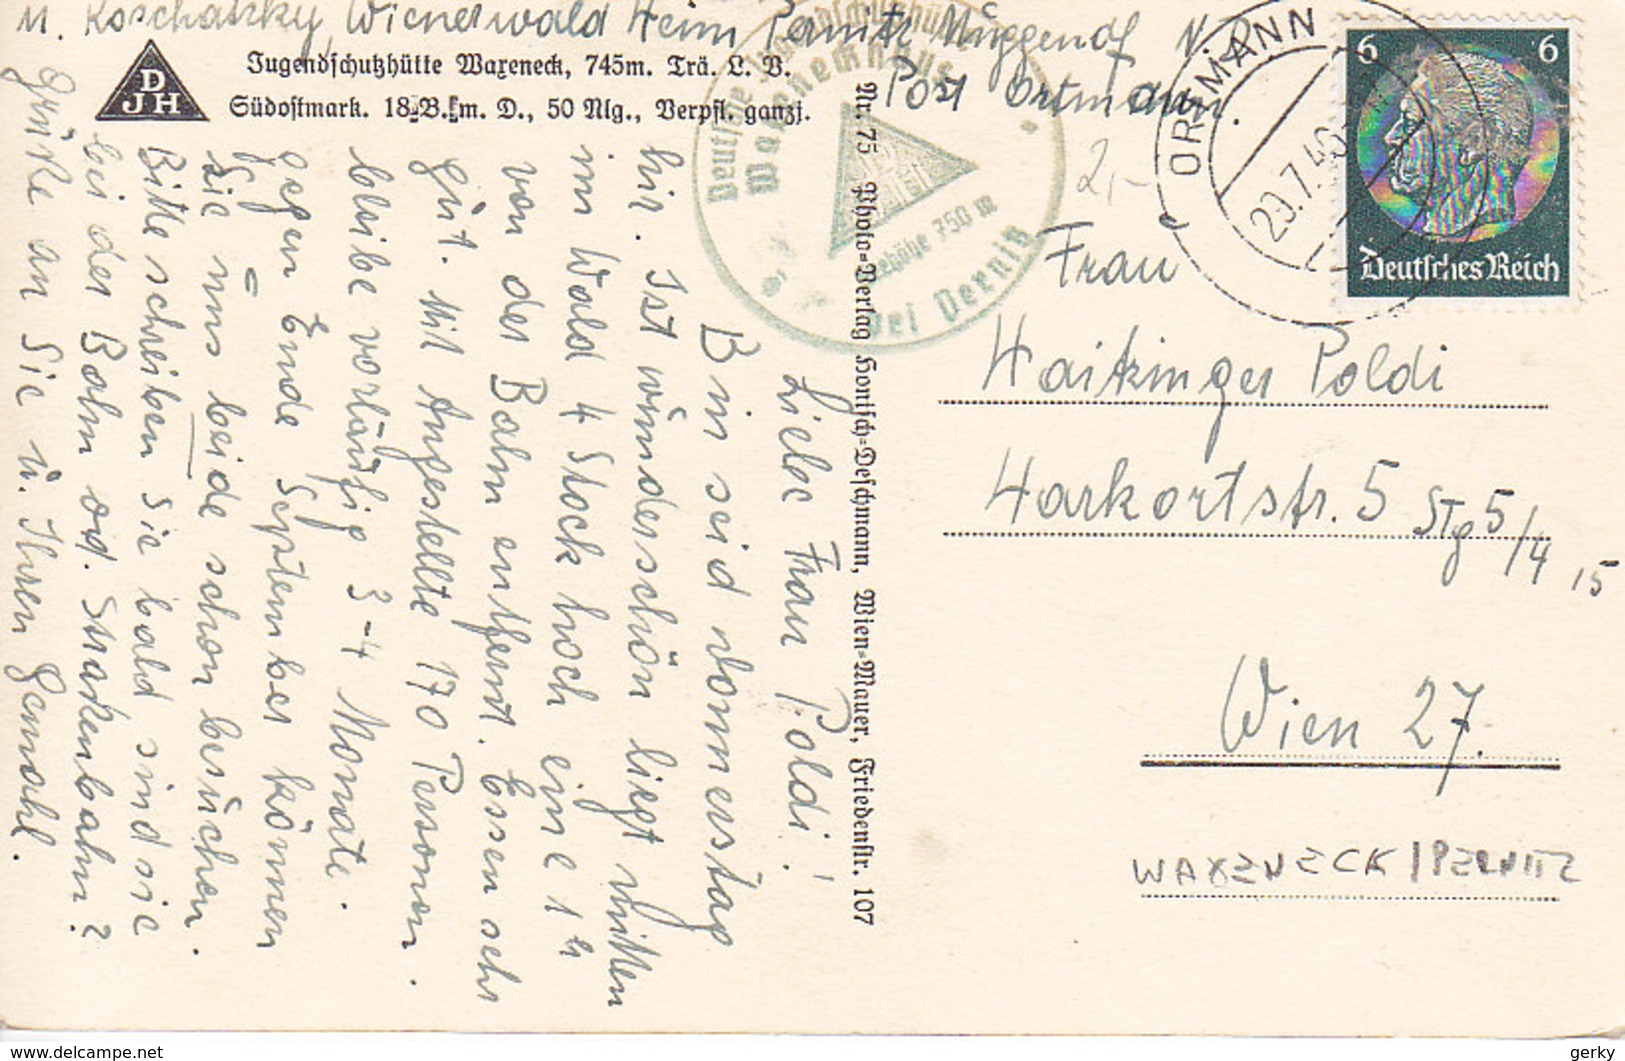 u. Koschatzky, Wienerwald Heim Pernitz Muggendf N.D.
Post Ortmann.
D
JH
Jugendschutzhütte Waxeneck, 745m. Trä. L. V.
Südostmark. 18 B. m. D., 50 Mlg., Verpfl. ganzj.
Liebe Frau Poldi!
Bin seid Donnerstag
hir. Ist wunderschön liegt mitten
im Wald 4 Stock hoch eine 1 h
von der Bahn entfernt. Essen sehr
gut. Mit Angestellte 170 Personen.
bleibe vorläufig 3-4 Monate.
gegen Ende September können
Sie uns beide schon besuchen.
Bitte schreiben Sie bald sind sie
bei der Bahn od. Straßenbahn?
Grüße an Sie u. Ihren Gemahl.
Nr. 75 Photo-Verlag Honisch-Deschmann, Wien-Mauer, Friedenstr. 107
Deutsche Jugendschutzhütte
Waxeneckhaus
Seehöhe 750 m
bei Pernitz
2,-
ORTMANN
29.7.40
6 6
Deutsches Reich
Frau
Haitzinger Poldi
Harkortstr. 5 Stg 5/4 15
Wien 27.
WAXENECK/PERNITZ
delcampe.net
gerky